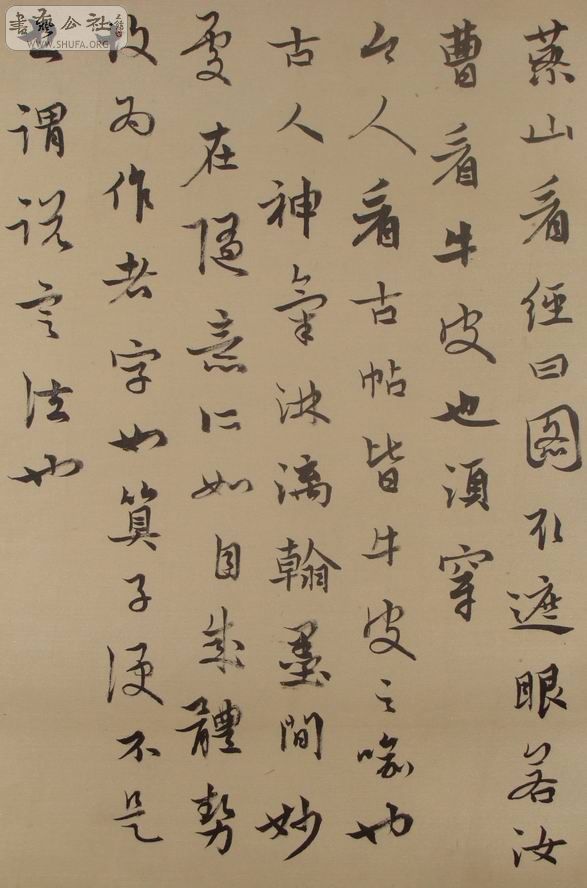 藥山看經曰圖取遮眼若汝
曹看牛皮也須穿
今人看古帖皆牛皮之喻也
古人神氣淋漓翰墨間妙
處在隨意所如自成體勢
故為作者字如算子便不是
謂說定法也
書藝公社
WWW.SHUFA.ORG